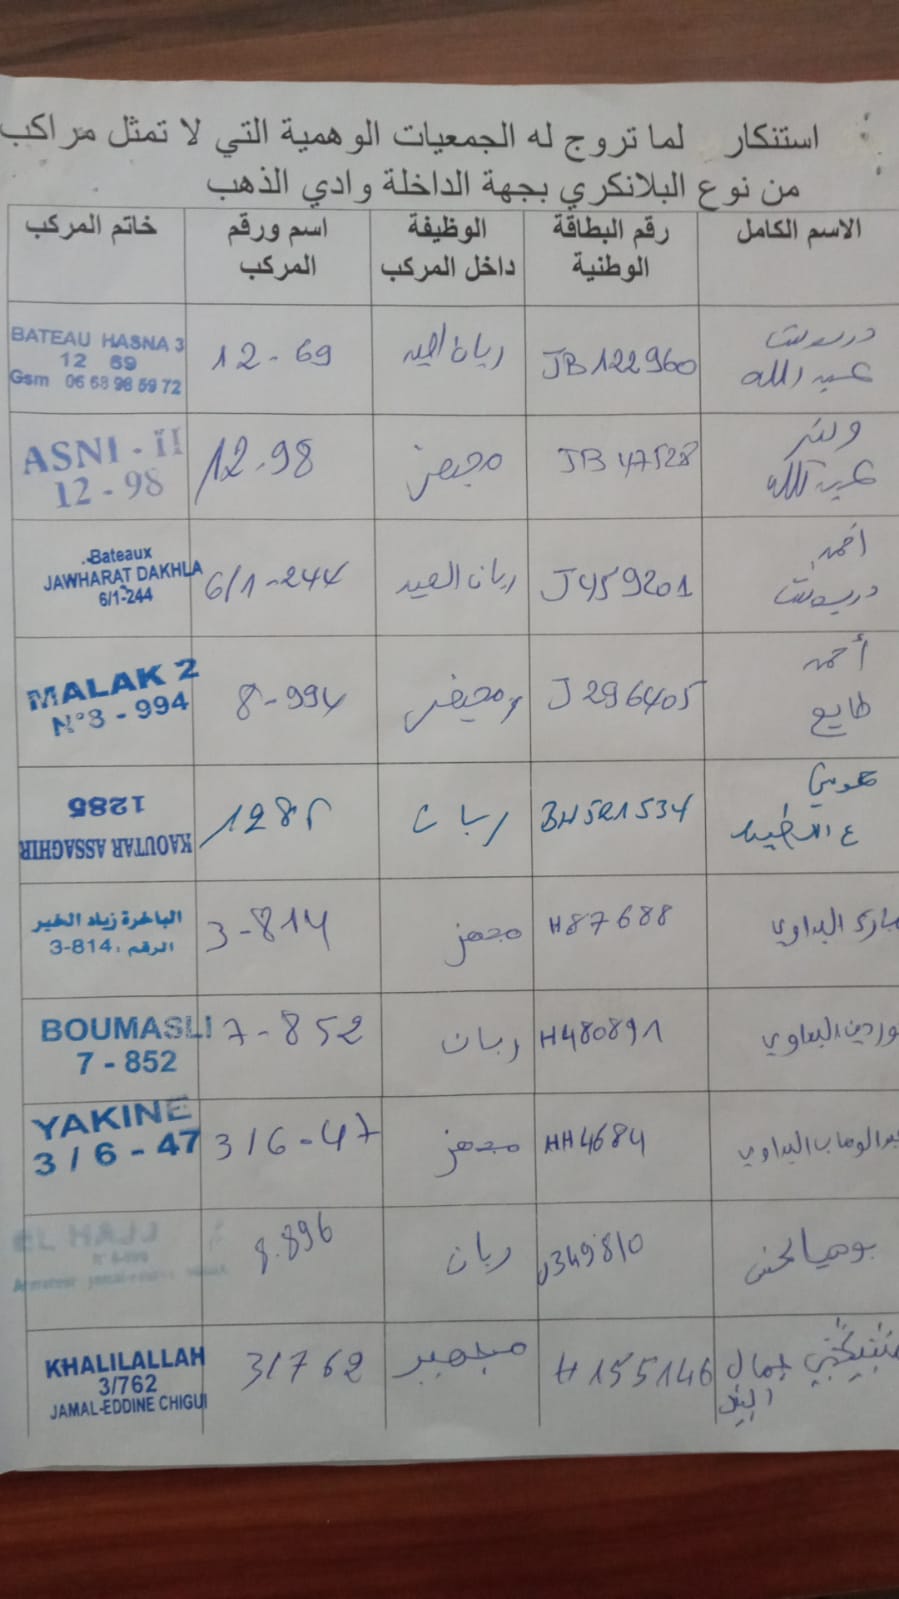 استنكار لما تروج له الجمعيات الوهمية التي لا تمثل مراكب
من نوع البلانكري بجهة الداخلة وادي الذهب
الاسم الكامل رقم البطاقة الوطنية الوظيفة داخل المركب اسم ورقم المركب خاتم المركب
عبد الله JB122960 ربان الصيد 12-69
BATEAU HASNA 3
12 69
Gsm 06 68 98 59 72
عبد الله JB47528 مجهز 12.98
ASNI - II
12 - 98
احمد J459201 ربان الصيد 6/1-244
Bateaux
JAWHARAT DAKHLA
6/1-244
أحمد طايع J296405 مجهز 8-994
MALAK 2
N°8 - 994
BH521534 ربان 1285
1285
KAOUTAR ASSAGHIR
مبارك البداوي H87688 مجهز 3-814
الباخرة زياد الخير
الرقم : 814-3
نوردين البداوي H480891 ربان 7-852
BOUMASLI
7 - 852
عبد الوهاب البداوي HH4684 مجهز 3/6-47
YAKINE
3 / 6 - 47
J349810 ربان 8.896
EL HAJJ
جمال الدين H155146 مجهز 3/762
KHALILALLAH
3/762
JAMAL-EDDINE CHIGUI